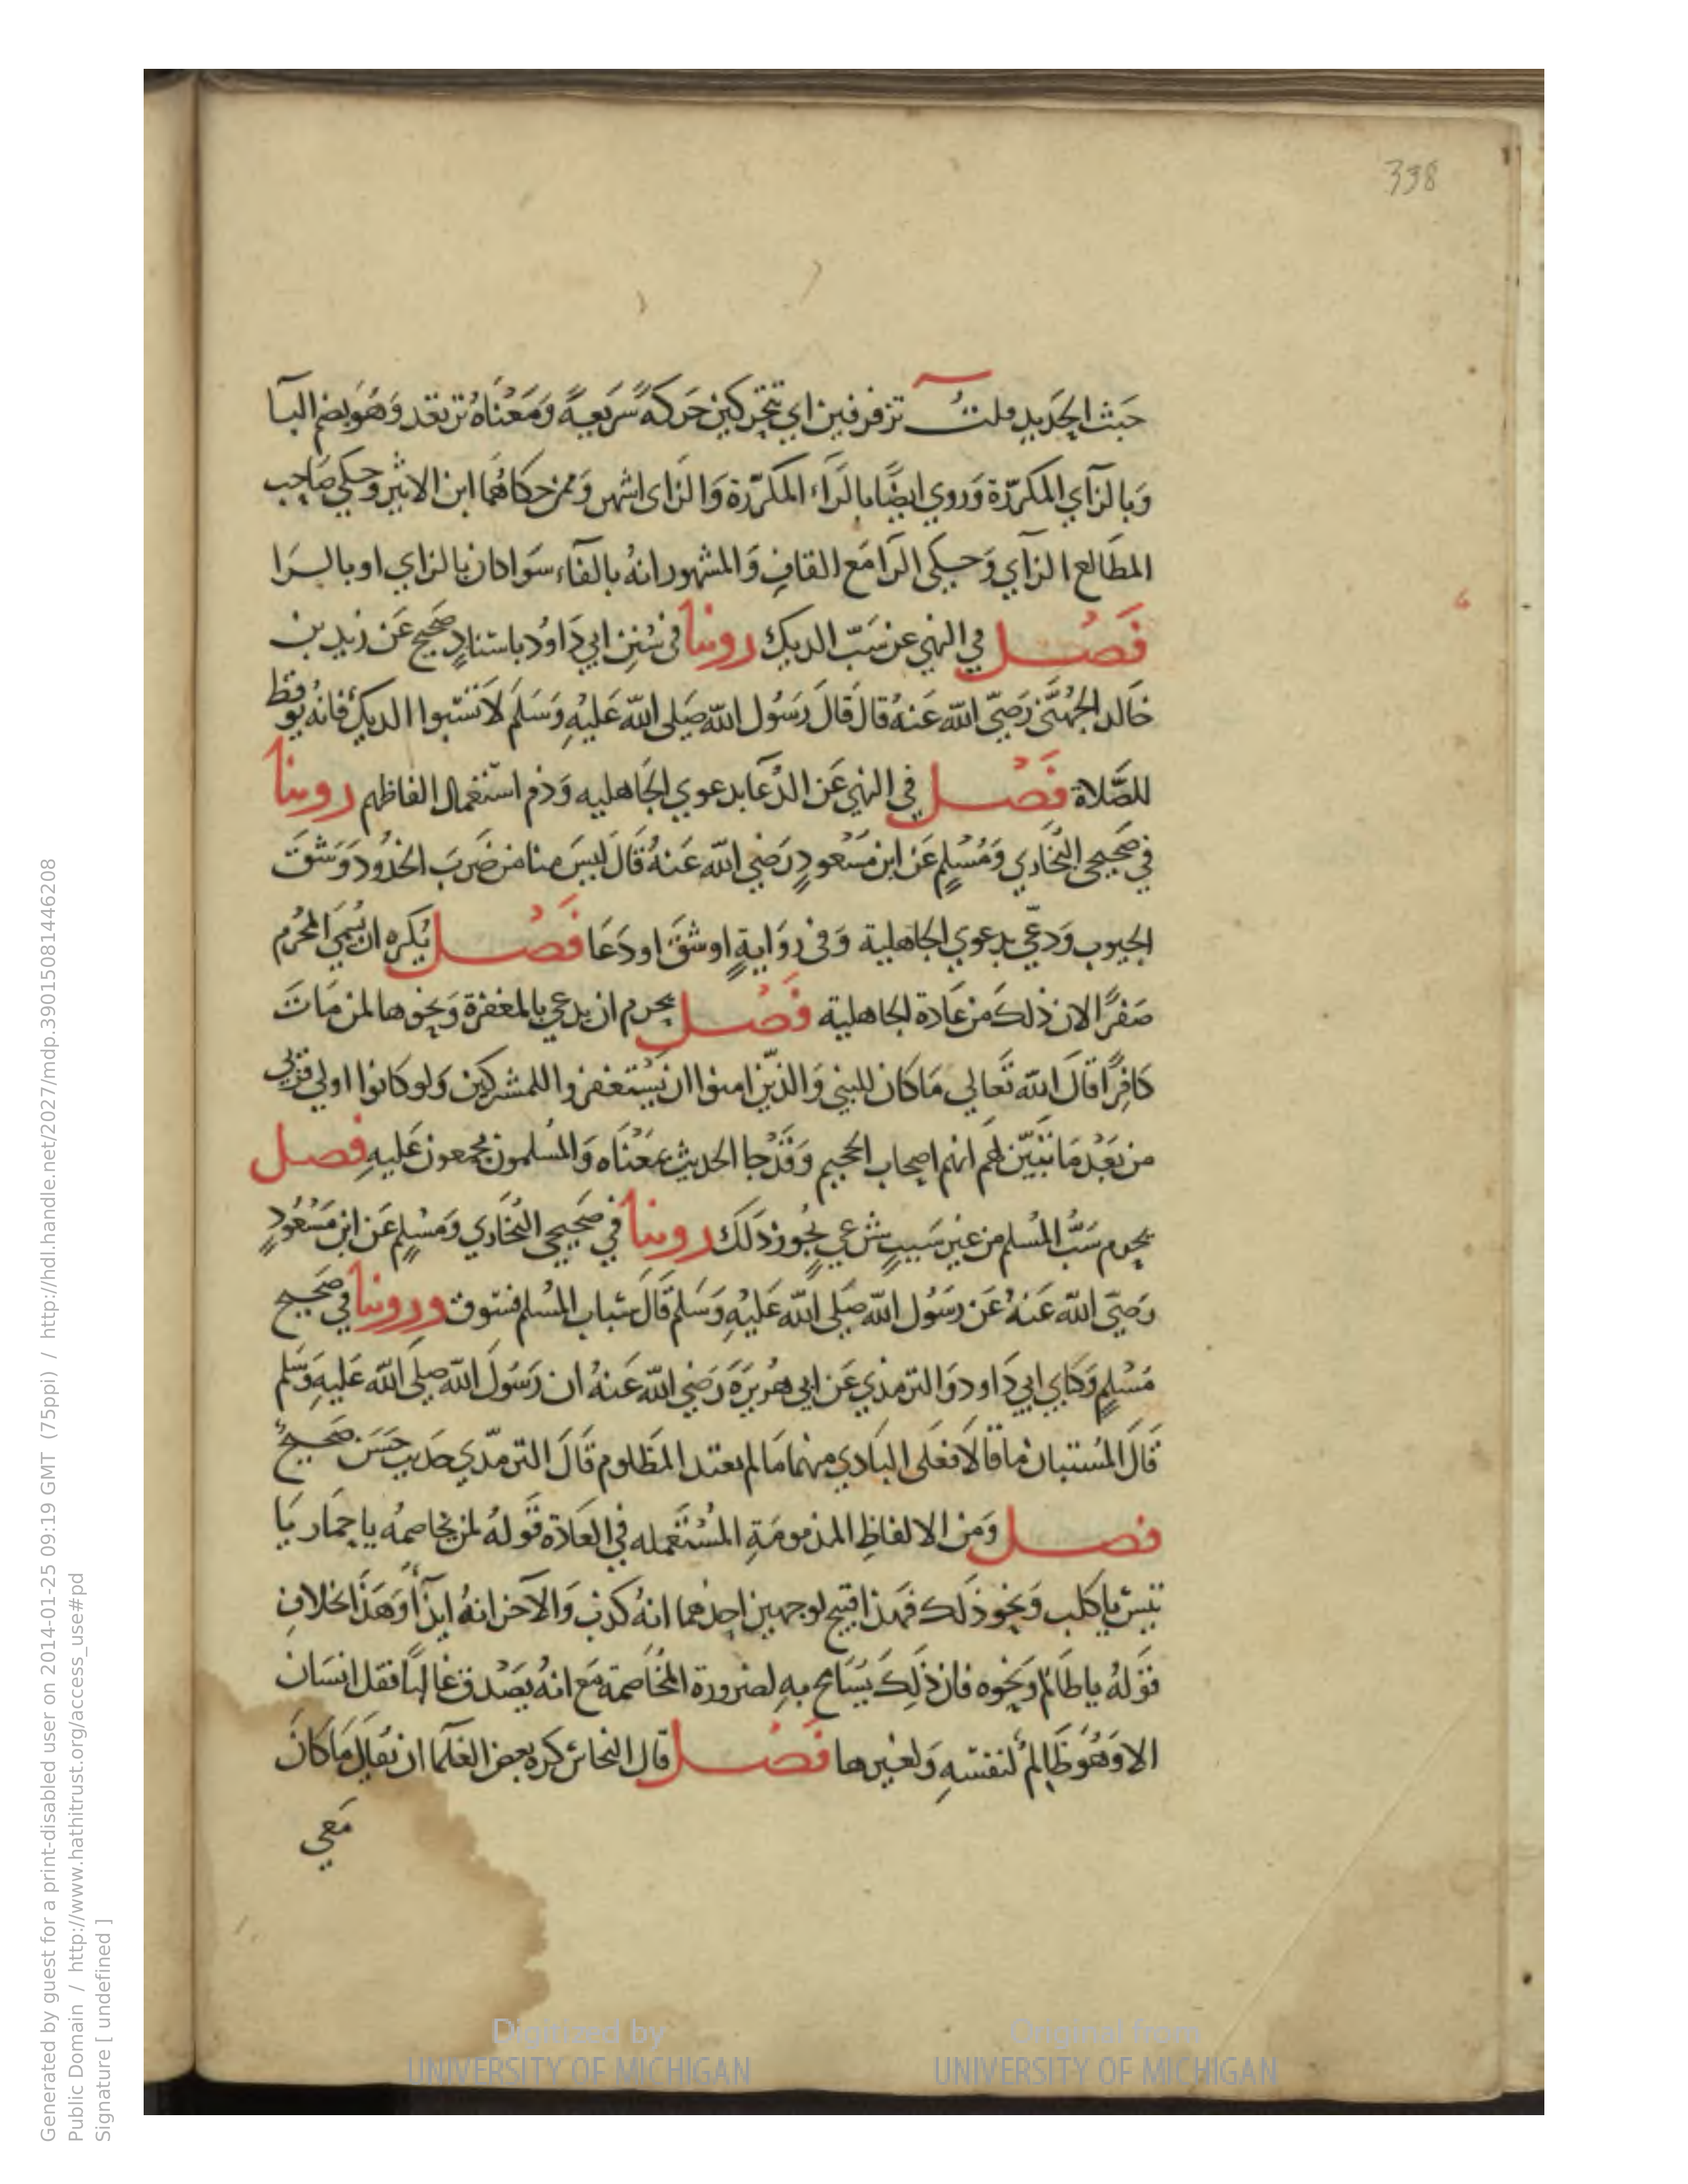 338
خبث الحديد قلت تزفزفين اي تتحركين حَركةً سَريعةً وَمَعْناهُ ترتعد وَهوَ بضم التا
وَبالزآي المكرّرة وَروي ايضًا بالرَّاء المكرّرة وَالزاى اشهر وَممن حكاهُما ابن الاثير وحكي صَاحِب
المطَالع الزآي وَحكى الرَا مَع القافِ وَالمشهور انهُ بالفآء سَوا كان بالزاي او بالرَا
فَصْل في النهي عن سَبّ الديك روينا فى سُنن ابي دَاوُد باسنادٍ صَحيح عَن زيد بن
خَالد الجُهَني رَضيَ الله عَنهُ قالَ قَالَ رَسُول الله صَلى الله عَليْهِ وَسَلم لَا تسُبوا الديك فَانهُ يُوقظ
للصَّلاة فَصْل في النهي عَن الدُعَا بدعوي الجَاهليه وَذم استعمال الفاظهم روينا
في صَحيحي البُخاري وَمُسْلمٍ عَن ابن مَسْعودٍ رَضِي الله عَنهُ قَالَ ليسَ منا من ضَربَ الخدُود وَشَقَ
الجيوب وَدعَي بدعوي الجاهلية وَفى روَايةٍ او شقَ او دَعَا فَصْل يُكره ان يُسَمي المحُرم
صَفرًا لان ذلكَ من عَادة الجاهلية فَصْل يحرم ان يدعي بالمغفرة وَنحوها لمن مَاتَ
كافِرًا قالَ الله تَعَالي مَا كان للنبي وَالذين امنوا ان يَستغفروا للمشركين وَلو كانوا اولي قربى
من بَعْد مَا تبَيّن لهَم انهم اصحاب الجحيم وَقَدْ جا الحديث بمَعْنَاه وَالمُسْلمون مجمعون عَليهِ فصل
يحرم سَبُّ المُسْلم من غير سَببٍ شرعيٍ يُجوز ذلكَ روينا في صَحيحي البُخَاري وَمُسْلمٍ عَن ابن مَسْعُودٍ
رَضيَ الله عَنهُ عَن رسَوُل الله صَلى الله عَليْهِ وَسَلم قَالَ سباب المُسْلم فسوق وروينا في صَحيح
مُسْلمٍ وَكتابي ابي دَاود وَالترمذي عَن ابى هُريرَةَ رَضِي الله عَنهُ ان رَسُولَ الله صلى الله عَليهِ وَسَلم
قَالَ المُستبان ما قالَا فعَلى البَادي منهما مَا لم يعتد المَظلوم قَالَ الترمذي حَديث حَسَن صَحيحٌ
فصل وَمن الالفاظِ المذمومَةِ المُسْتَعْمله في العَادَة قَولهُ لمن يخَاصمهُ يا حِمَار يَا
تيس يا كلب وَنحو ذلك فهَذا قبيح لوجهين احدهما انهُ كذب وَالآخر انهُ ايذآ وَهَذا بخلافِ
قوْلهُ يا ظالم وَنحوه فان ذلِكَ يُسَامح بهِ لضرورة المخَاصمة مَع انهُ يَصْدق غَالبًا فقل انسَان
الا وَهُوَ ظَالمٌ لنفسهِ وَلغيرها فَصْل قال النحاس كره بعض العُلَما ان يُقال مَا كانَ
مَعي
Generated by guest for a print-disabled user on 2014-01-25 09:19 GMT (75ppi) / http://hdl.handle.net/2027/mdp.39015081446208
Public Domain / http://www.hathitrust.org/access_use#pd
Signature [ undefined ]
Digitized by
UNIVERSITY OF MICHIGAN
Original from
UNIVERSITY OF MICHIGAN